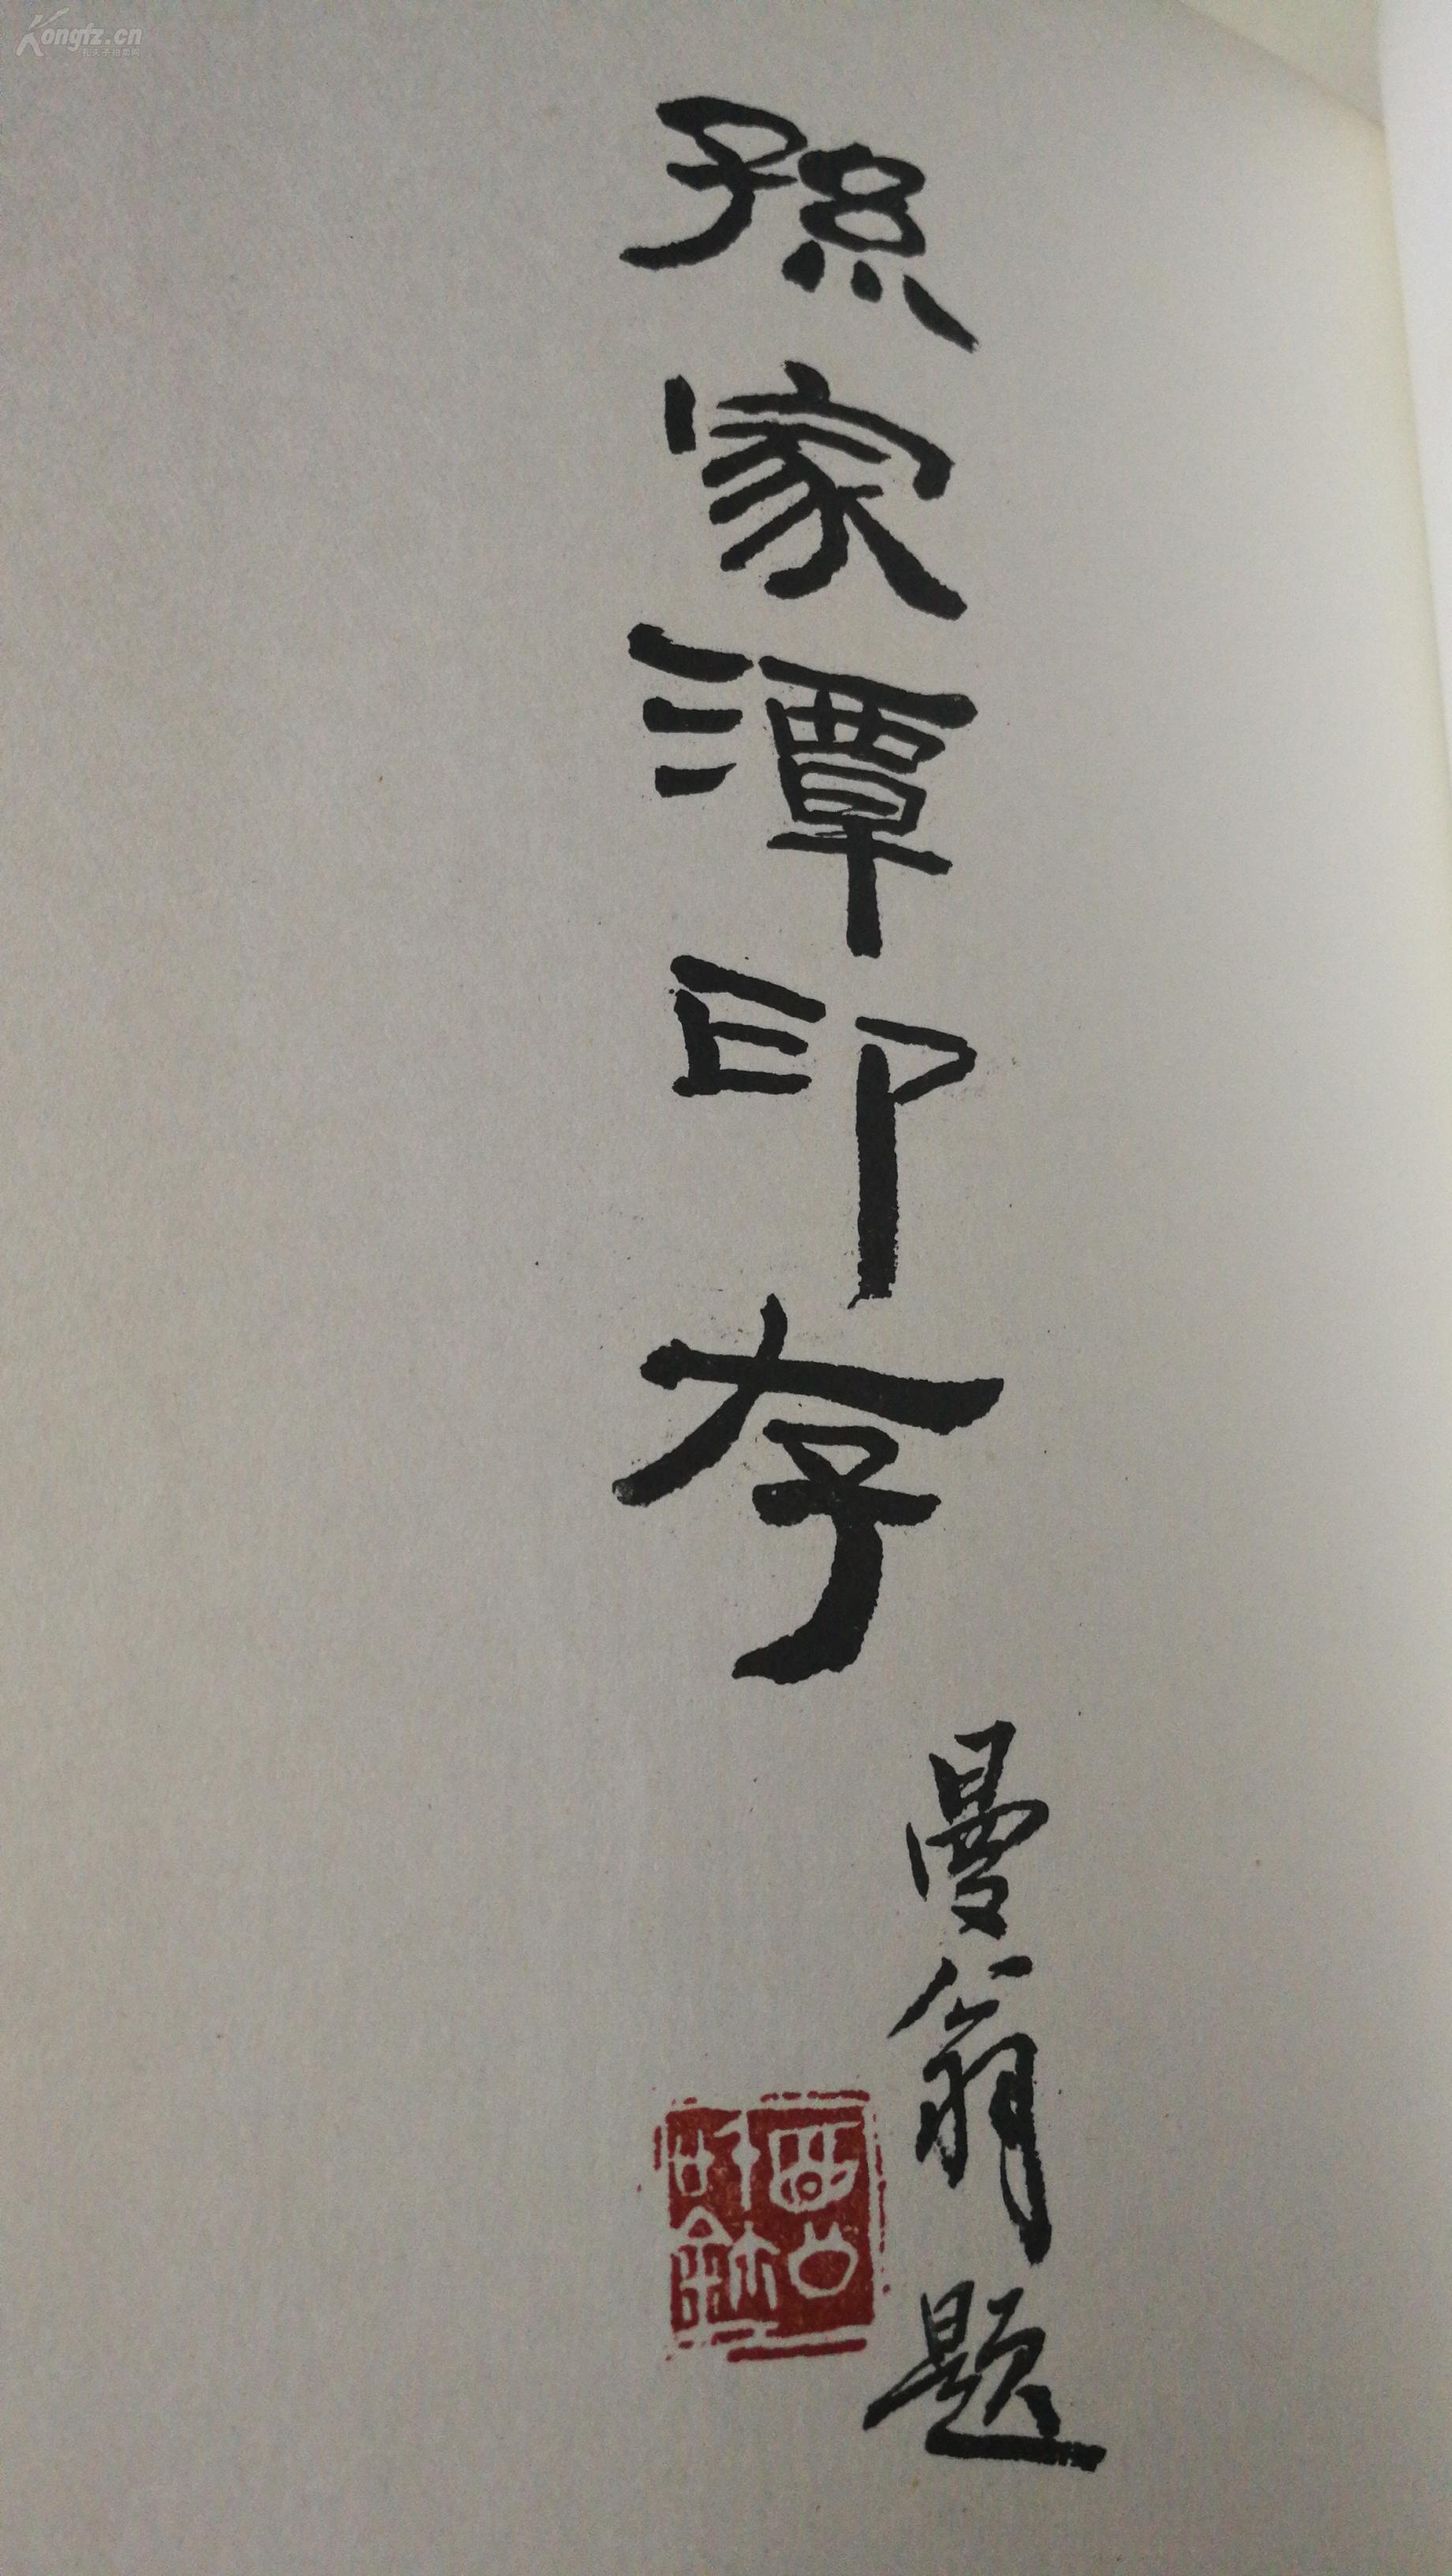 Kongfz.cn
孫家潭印存
曼翁題